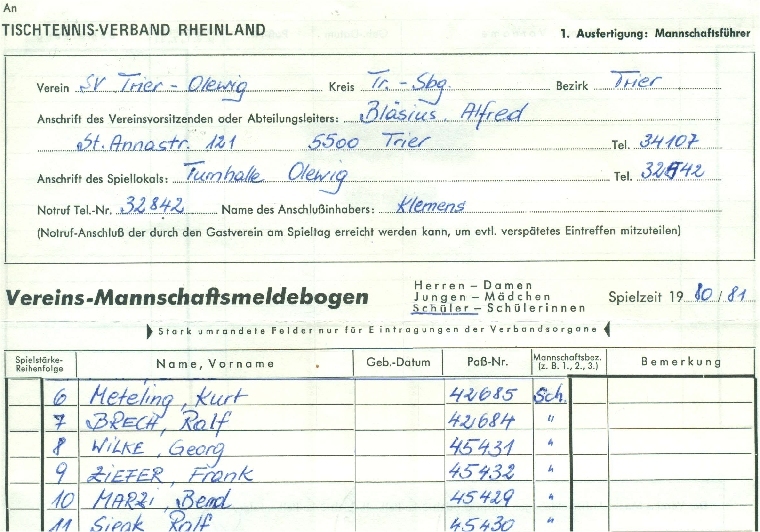 An
TISCHTENNIS-VERBAND RHEINLAND
1. Ausfertigung: Mannschaftsführer
Verein SV Trier-Olewig Kreis Tr.-Sbg. Bezirk Trier
Anschrift des Vereinsvorsitzenden oder Abteilungsleiters: Bläsius, Alfred
St. Annastr. 121 5500 Trier Tel. 34107
Anschrift des Spiellokals: Turnhalle Olewig Tel. 32842
Notruf Tel.-Nr. 32842 Name des Anschlußinhabers: Klemens
(Notruf-Anschluß der durch den Gastverein am Spieltag erreicht werden kann, um evtl. verspätetes Eintreffen mitzuteilen)
Vereins-Mannschaftsmeldebogen
Herren – Damen
Jungen – Mädchen
Schüler – Schülerinnen
Spielzeit 19 80/81
Stark umrandete Felder nur für Eintragungen der Verbandsorgane
Spielstärke-Reihenfolge Name, Vorname Geb.-Datum Paß-Nr. Mannschaftsbez. (z. B. 1., 2., 3.) Bemerkung
6 Meteling, Kurt 42685 Sch.
7 BRECH, Ralf 42684 "
8 WILKE, Georg 45431 "
9 ZIEFER, Frank 45432 "
10 MARZI, Bernd 45429 "
11 Ralf 45430 "